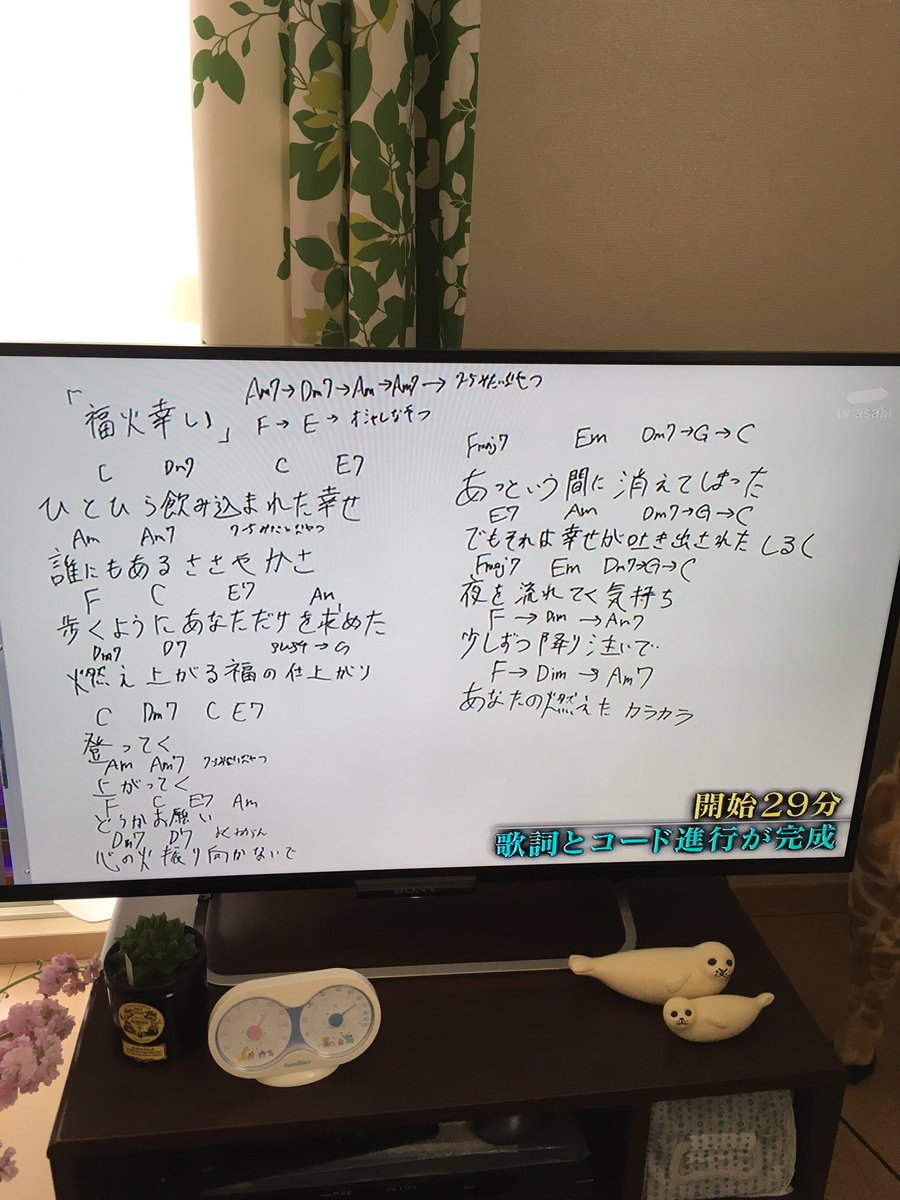 「福火幸い」
Am7→Dm7→Am→Am7→
F→E→オシャレなやつ
C Dm7 C E7
ひとひら飲み込まれた幸せ
Am Am7
誰にもあるささやかさ
F C E7 Am
歩くようにあなただけを求めた
Dm7 D7 →G
燃え上がる福の仕上がり
C Dm7 C E7
登ってく
Am Am7
上がってく
F C E7 Am
どうかお願い
Dm7 D7 よくわからん
心の火振り向かないで
Fmaj7 Em Dm7→G→C
あっという間に消えてしまった
E7 Am Dm7→G→C
でもそれは幸せが吐き出されたしるく
Fmaj7 Em Dm7→G→C
夜を流れてく気持ち
F→Dim→Am7
少しずつ降り注いで
F→Dim→Am7
あなたの燃えたカラカラ
tv asahi
開始29分
歌詞とコード進行が完成
SONY